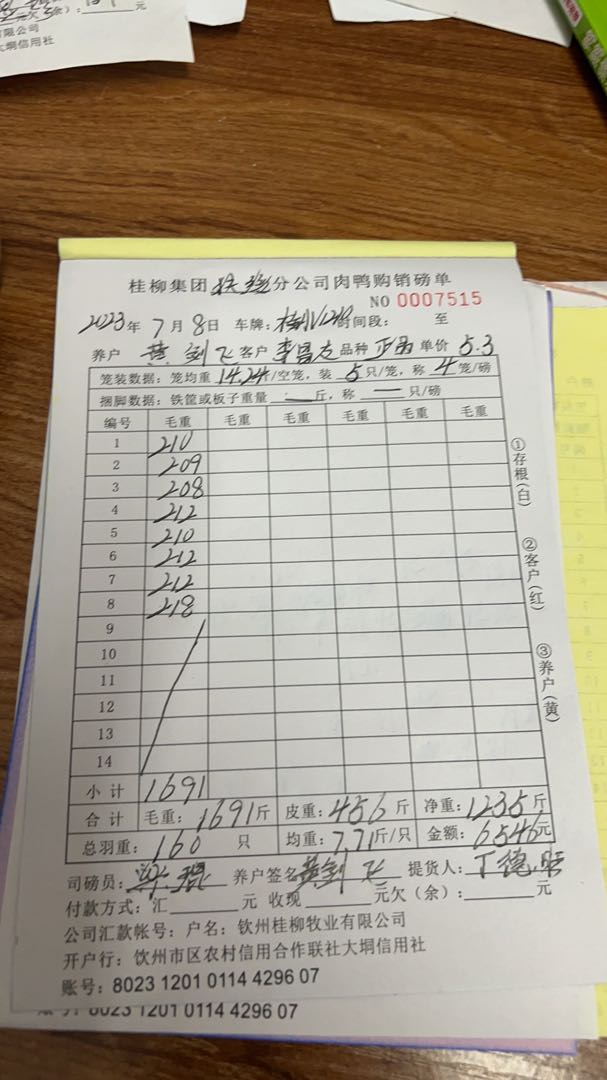 元欠（余）：元
有限公司
大垌信用社
桂柳集团 分公司肉鸭购销磅单
NO 0007515
2023年 7月 8日 车牌： 时间段： 至
养户 黄剑飞 客户 李昌友 品种 单价 5.3
笼装数据：笼均重 14.24斤/空笼，装 5 只/笼，称 4 笼/磅
捆脚数据：铁筐或板子重量 — 斤，称 — 只/磅
编号 毛重 毛重 毛重 毛重 毛重 毛重
1 210
2 209
3 208
4 212
5 210
6 212
7 212
8 218
9
10
11
12
13
14
小计 1691
合计 毛重：1691斤 皮重：456斤 净重：1235斤
总羽重：160 只 均重：7.71斤/只 金额：6546元
司磅员： 养户签名 黄剑飞 提货人：丁德
付款方式：汇 元 收现 元欠（余）： 元
公司汇款帐号：户名：钦州桂柳牧业有限公司
开户行：饮州市区农村信用合作联社大垌信用社
账号：8023 1201 0114 4296 07
①存根（白）
②客户（红）
③养户（黄）
账号：8023 1201 0114 4296 07